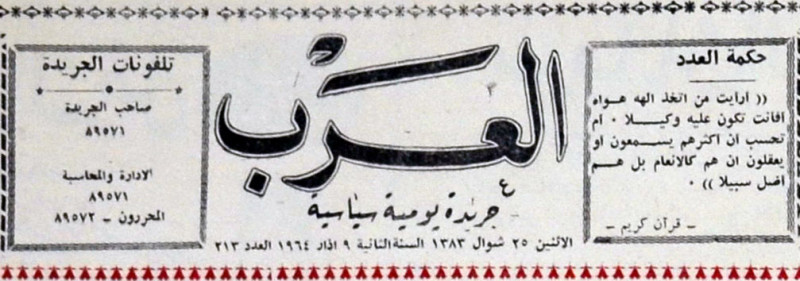 حكمة العدد
(( ارايت من اتخذ الهه هواه
افانت تكون عليه وكيلا ٠ ام
تحسب ان اكثرهم يسمعون او
يعقلون ان هم كالانعام بل هم
اضل سبيلا )) ٠
ـ قرآن كريم ـ
العرب
جريدة يومية سياسية
الاثنين ٢٥ شوال ١٣٨٣ السنة الثانية ٩ اذار ١٩٦٤ العدد ٢١٣
تلفونات الجريدة
صاحب الجريدة
٨٩٥٧١
الادارة والمحاسبة
٨٩٥٧١
المحررون ـ ٨٩٥٧٢